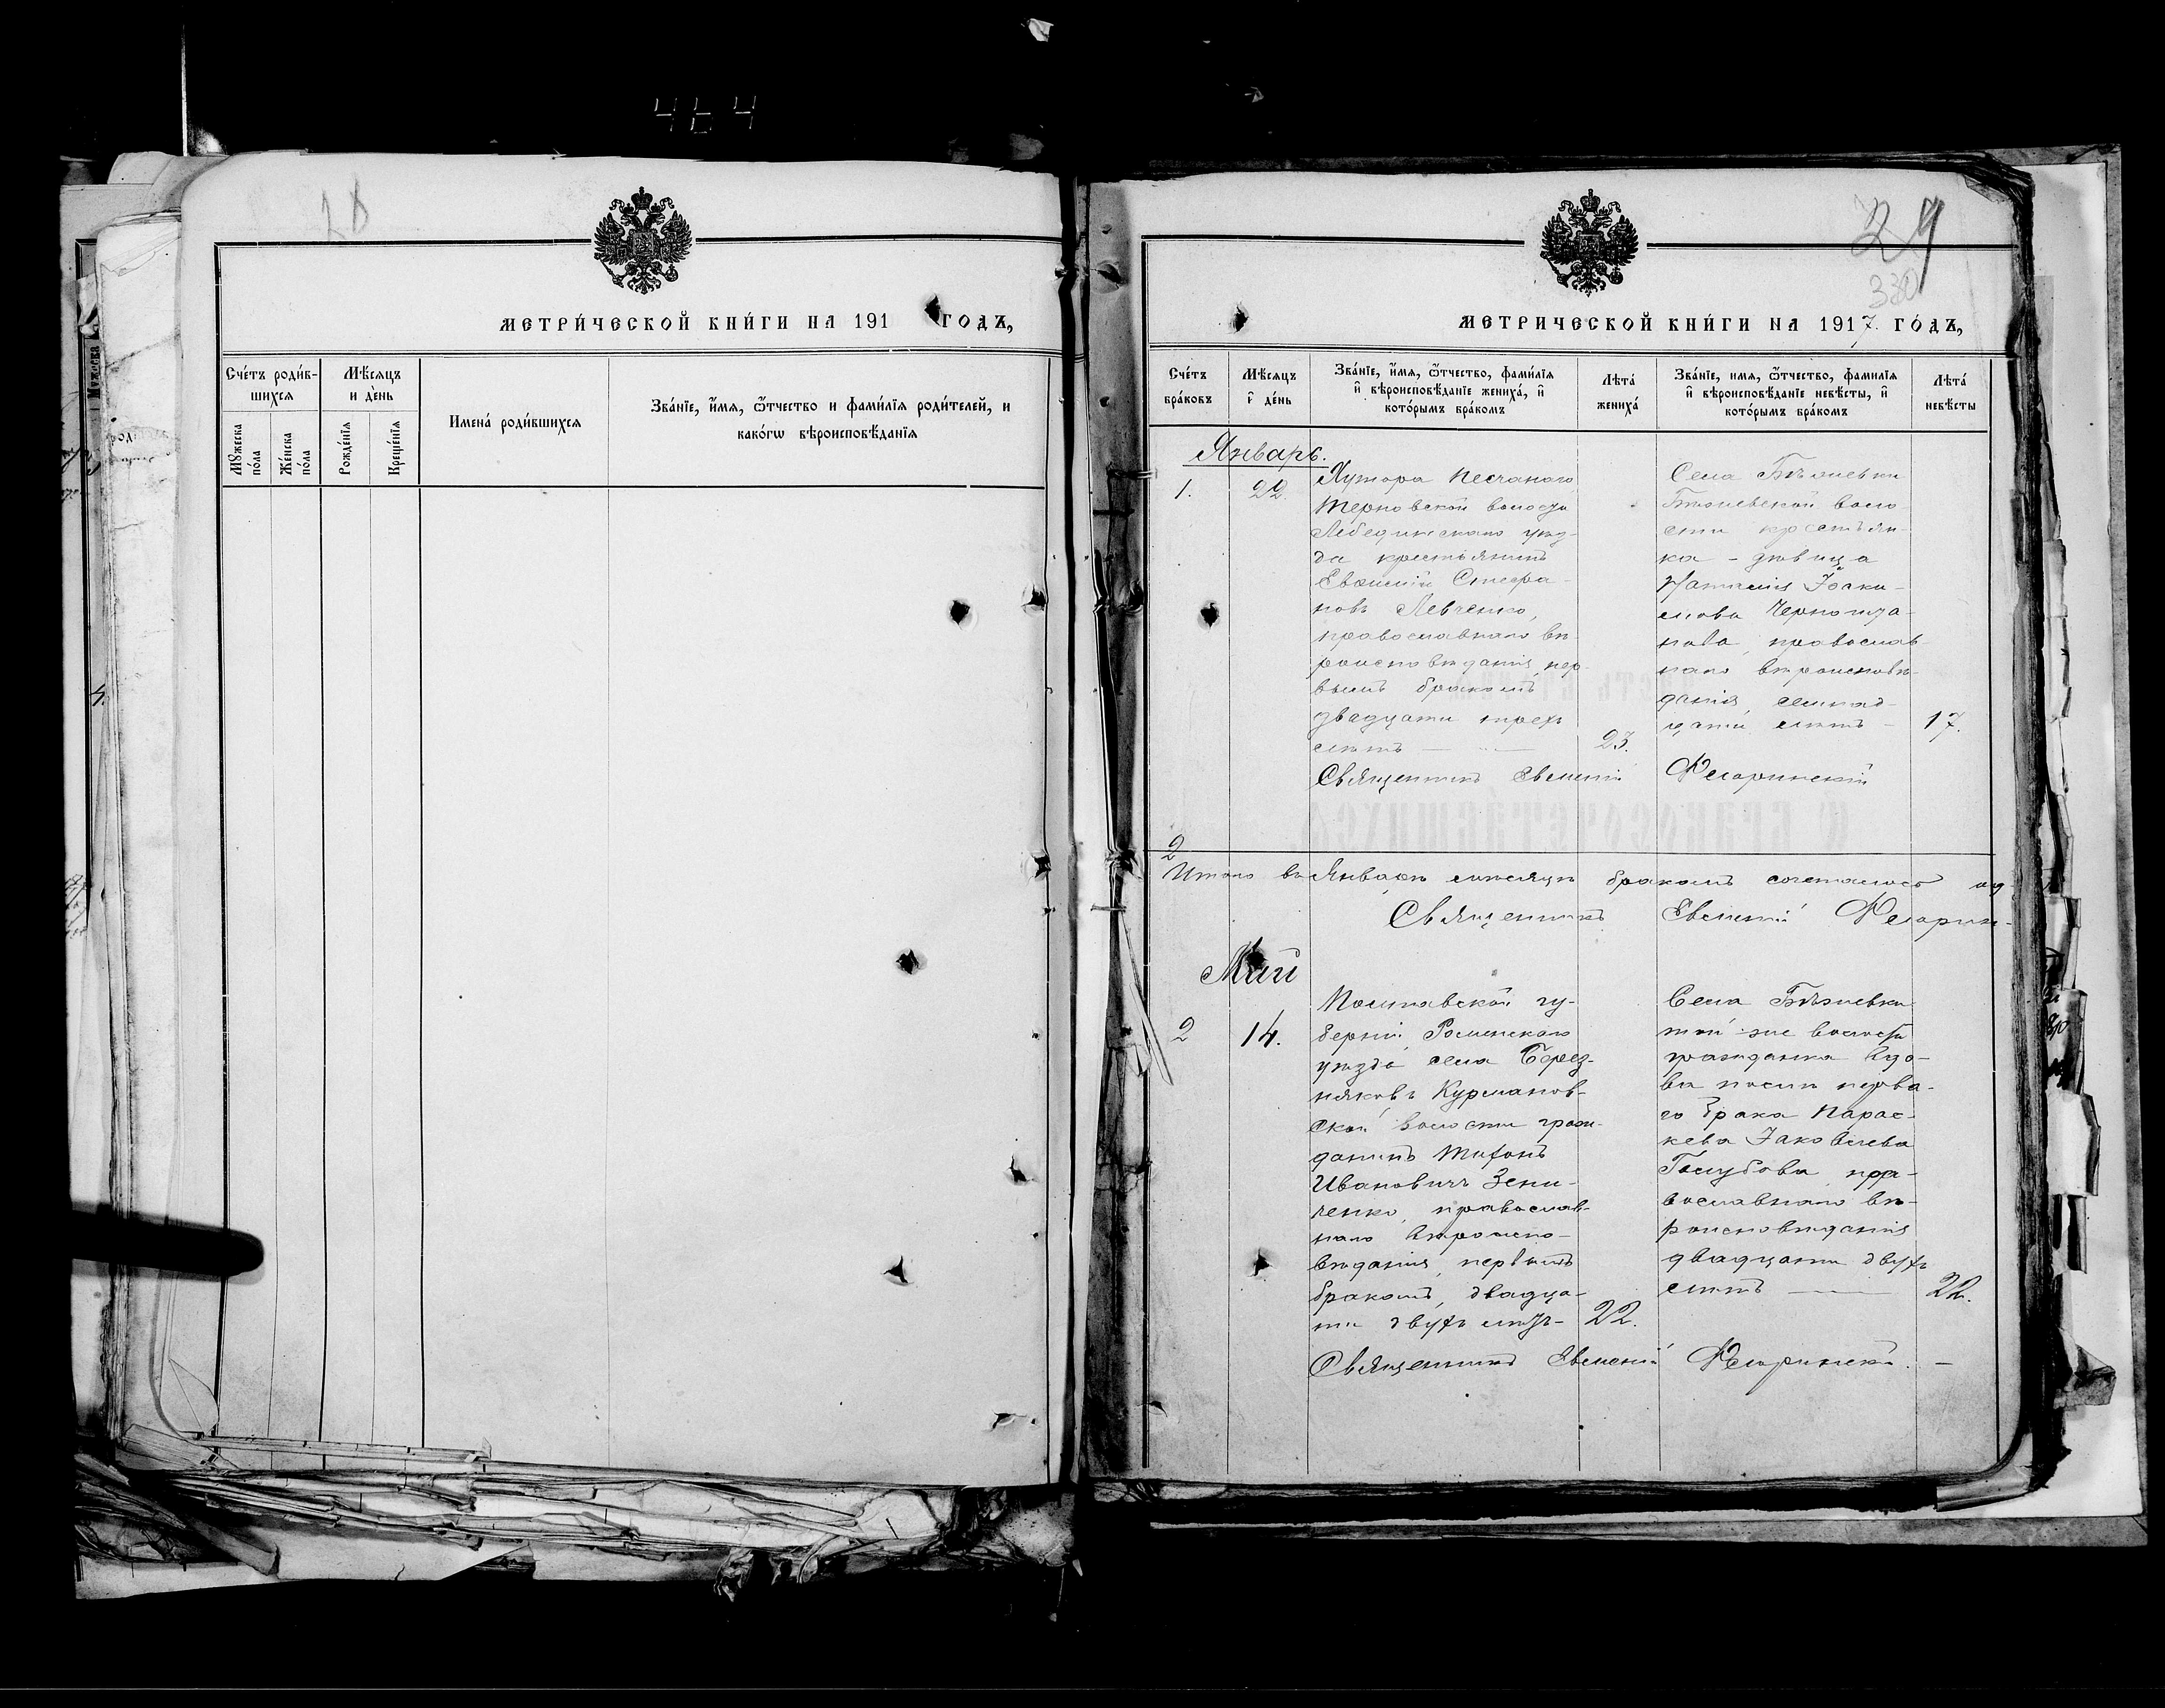 28
МЕТРИ́ЧЕСКОЙ КНИ́ГИ НА 191 ГОДЪ,
Сче́тъ роди́в-
шихся
Мѣ́сяцъ
и де́нь
Мꙋ́жеска
по́ла
Же́нска
по́ла
Рожде́нїя
Креще́нїя
Имена̀ роди́вшихся
Зва́нїе, и́мя, ѻ҆́тчество и фами́лїя роди́телей, и
како́гѡ вѣроисповѣ́данїя
29
330
МЕТРИЧЕСКОЙ КНИ́ГИ НА 1917. ГО́ДЪ,
Сче́тъ
бра́ковъ
Мѣ́сяцъ
и де́нь
Зва́нїе, и́мя, ѻ҆́тчество, фами́лїя
и вѣроисповѣ́данїе жениха̀, и
кото́рымъ бра́комъ
Лѣта̀
жениха̀
Зва́нїе, имя, ѻ҆́тчество, фамилїя
и вѣроисповѣ́данїе невѣ́сты, и
кото́рымъ бра́комъ
Лѣта̀
невѣ́сты
Январь.
1.
22
Хутора Песчанаго
Терновской волости
Лебединскаго уѣз-
да крестьянинъ
Стефа-
новъ Левченко,
православнаго вѣ-
роисповѣданія, пер-
вымъ бракомъ
двадцати трехъ
лѣтъ —
23.
Села
воло
сти крестьян-
ка - дѣвица
Наталія Іоаки-
мова
православ
наго вѣроисповѣ-
данія, семнад-
цати лѣтъ —
17.
Священникъ Евгеній Флоринскій
2
Итого въ Январѣ мѣсяцѣ бракомъ сочеталось
Священникъ Евгеній Флорин-
Май
2
14.
Полтавской гу-
берніи, Роменскаго
уѣзда села Берез-
няковъ Курманов-
ской волости граж-
данинъ Тихонъ
Ивановичъ Зени-
ченко, православ-
наго вѣроиспо-
вѣданія, первымъ
бракомъ, двадца-
ти двухъ лѣтъ-
22.
Села
той-же волости
гражданка вдо-
ва послѣ перва-
го брака Парас-
кева Іаковлева
Голубова, пра-
вославнаго вѣ-
роисповѣданія
двадцати двухъ
лѣтъ —
22.
Священникъ Евгеній Флоринскій. —